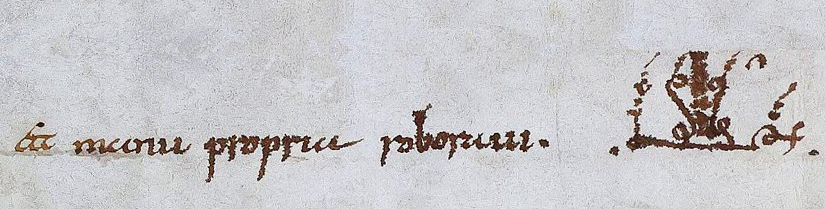 manu propria roboraui.